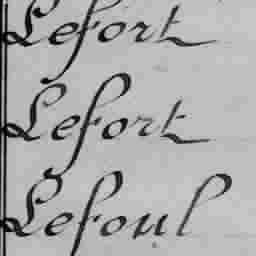 Lefort
Lefort
Lefoul